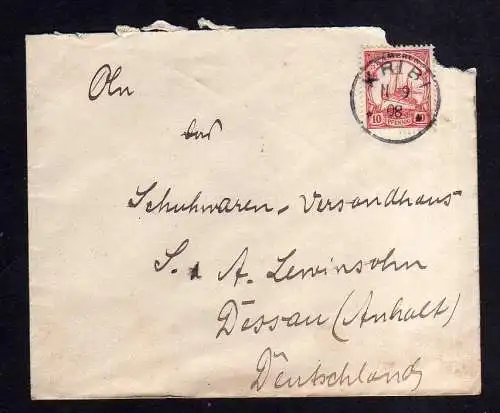 KAMERUN
KRIBI
11 9
08
10 10
PFENNIG
An
das
Schuhwaren-Versandhaus
S. A. Lewinsohn
Dessau (Anhalt)
Deutschland